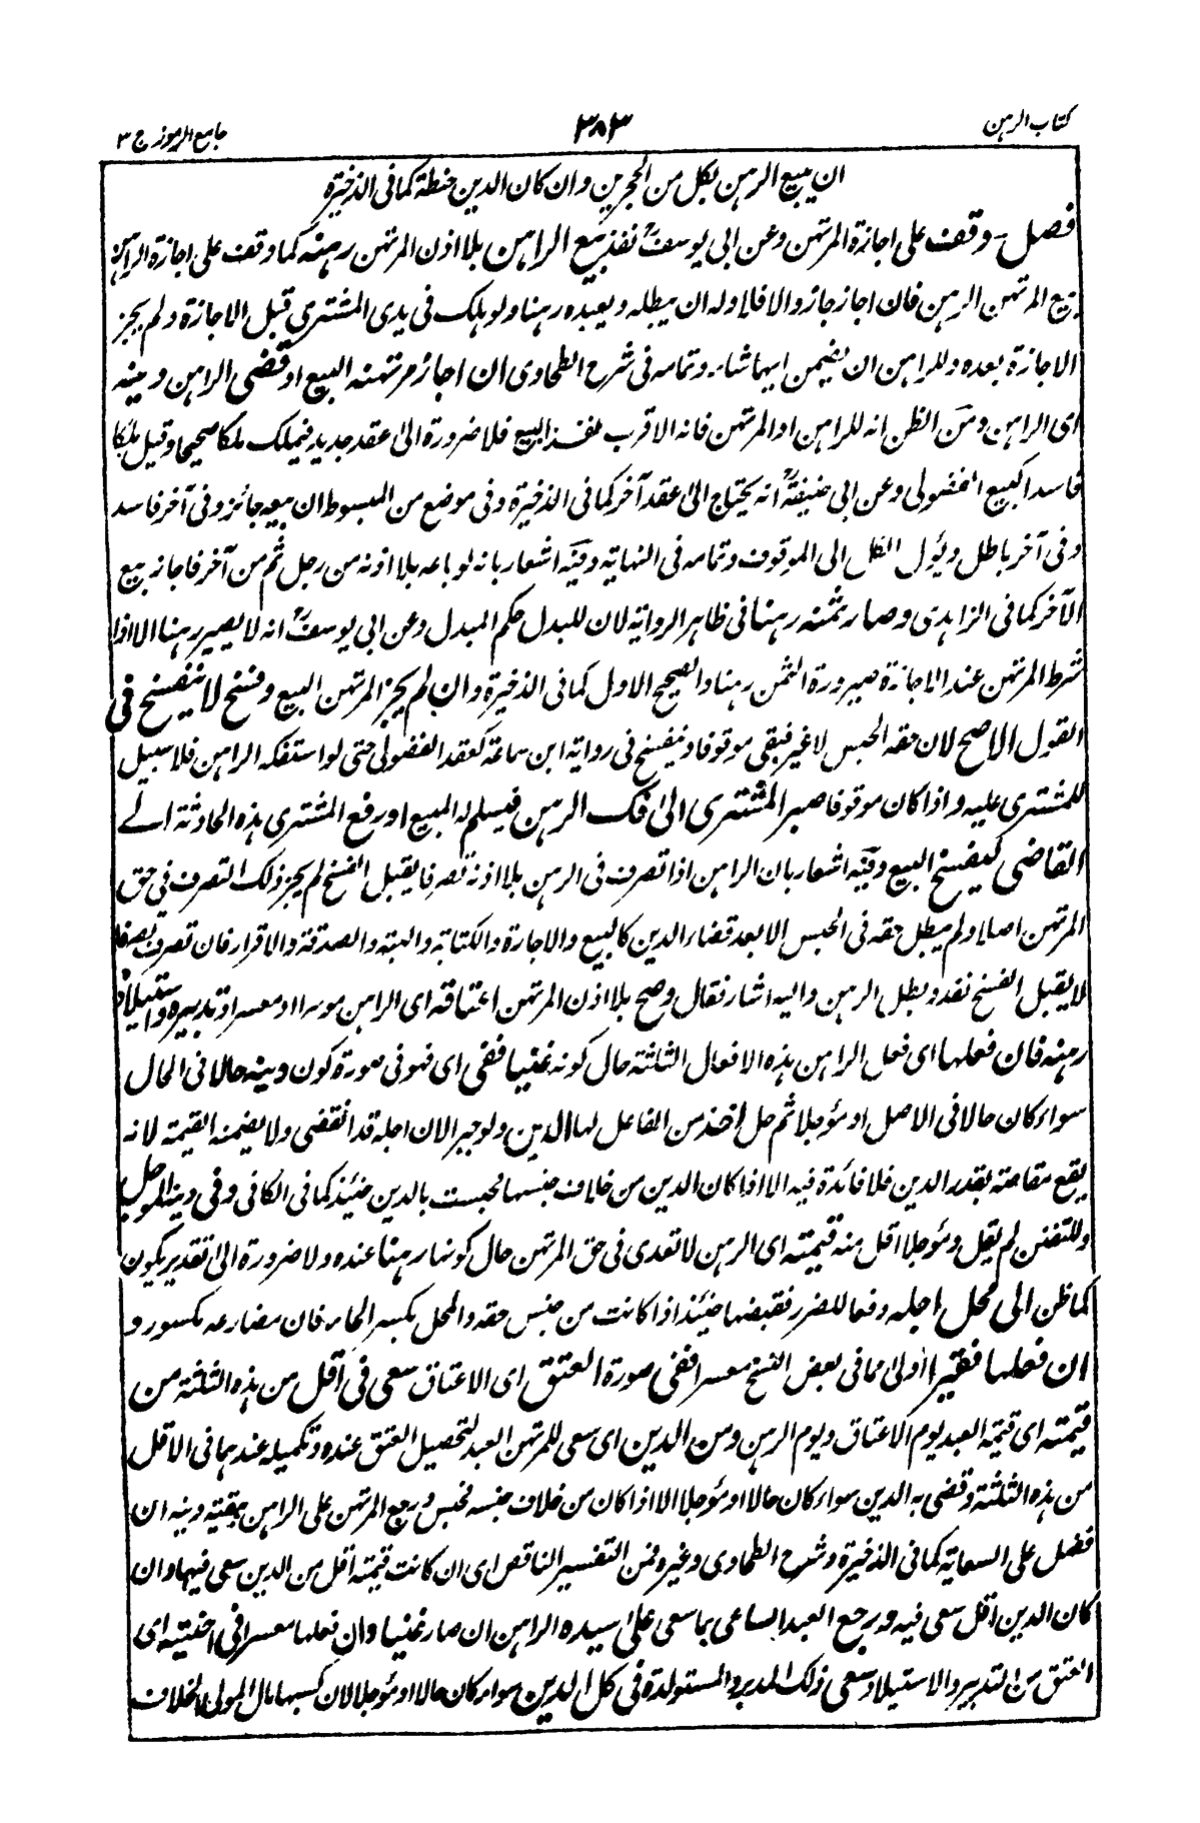 كتاب الرهن
٣٨٣
جامع الرموز ج ٣
ان يبيع الرهن بكل من الحجرين وان كان الدين حنطة كما فى الذخيرة
فصل۔ وقف على اجازة المرتهن وعن ابى يوسف نفذ بيع الراهن بلا اذن المرتهن رهنه كما وقف على اجازة الراهن
بيع المرتهن الرهن فان اجاز جاز والا فلا وله ان يبطله ويعيده رهنا ولو هلك فى يدى المشترى قبل الاجازة ولم يجز
الاجازة بعده وللراهن ان يضمن ايهما شاء وتمامه فى شرح الطحاوى ان اجاز مرتهنه البيع او قضى الراهن دينه
اى الراهن ومن الظن انه للراهن او المرتهن فانه الاقرب نفذ البيع فلا ضرورة الى عقد جديد فيملك ملكا صحيحا وقيل ملكا
فاسدا كبيع الفضولى وعن ابى حنيفة انه يحتاج الى عقد آخر كما فى الذخيرة وفى موضع من المبسوط ان بيعه جائز وفى آخر فاسد
وفى آخر باطل ويؤل الكل الى الموقوف وتمامه فى النهاية وفيه اشعار بانه لو باعه بلا اذنه من رجل ثم من آخر فاجاز بيع
الآخر كما فى الزاهدى وصار ثمنه رهنا فى ظاهر الرواية لان للبدل حكم المبدل وعن ابى يوسف انه لا يصير رهنا الا اذا
شرط المرتهن عند الاجازة صيرورة الثمن رهنا والصحيح الاول كما فى الذخيرة وان لم يجز المرتهن البيع وفسخ لا ينفسخ فى
القول الاصح لان حقه الحبس لا غير فبقى موقوفا وينفسخ فى رواية ابن سماعة كعقد الفضولى حتى لو استفكه الراهن فلا سبيل
للمشترى عليه واذا كان موقوفا صبر المشترى الى فك الرهن فيسلم له المبيع او رفع المشترى هذه الحادثة الے
القاضى ليفسخ البيع وفيه اشعار بان الراهن اذا تصرف فى الرهن بلا اذنه تصرفا يقبل الفسخ لم يجز ذلك التصرف فى حق
المرتهن اصلا ولم يبطل حقه فى الحبس الا بعد قضاء الدين كالبيع والاجارة والكتابة والهبة والصدقة والاقرار فان تصرف تصرفا
لا يقبل الفسخ نفذ وبطل الرهن واليه اشار فقال وصح بلا اذن المرتهن اعتاقه اى الراهن موسرا او معسرا وتدبيره واستيلاده
رهنه فان فعلها اى فعل الراهن هذه الافعال الثلثة حال كونه غنيا ففى اى فهو فى صورة كون دينه حالا فى الحال
سواء كان حالا فى الاصل او مؤجلا ثم حل اخذ من الفاعل لها الدين ولو جبرا لان اجله قد انقضى ولا يضمنه القيمة لانه
يقع مقاصة بقدر الدين فلا فائدة فيه الا اذا كان الدين من خلاف جنسها فحبست بالدين حينئذ كما فى الكافى وفى دينه المؤجل
وللتفنن لم يقل ومؤجلا اقل منه قيمته اى الرهن لا تعدى فى حق المرتهن حال كونها رهنا عنده ولا ضرورة الى تقدير يكون
كما ظن الى محل اجله دفعا للضرر فقبضها حينئذ اذا كانت من جنس حقه والمحل بكسر الحاء فان مضارعه مكسور و
ان فعلها فقيرا اولى مما فى بعض النسخ معسرا ففى صورة العتق اى الاعتاق سعى فى اقل من هذه الثلثة من
قيمته اى قيمة العبد يوم الاعتاق ويوم الرهن ومن الدين اى سعى للمرتهن العبد لتحصيل العتق عنده وتكميله عندهما فى الاقل
من هذه الثلثة وقضى به الدين سواء كان حالا او مؤجلا الا اذا كان من خلاف جنسه فحبس ورجع المرتهن على الراهن ببقية دينه ان
فضل على السعاية كما فى الذخيرة وشرح الطحاوى وغيره فمن التفسير الناقص اى ان كانت قيمته اقل من الدين سعى فيها وان
كان الدين اقل سعى فيه ورجع العبد الساعى بما سعى على سيده الراهن ان صار غنيا وان فعلها معسرا فى اختيه اى
العتق من التدبير والاستيلاد سعى ذلك المدبر والمستولدة فى كل الدين سواء كان حالا او مؤجلا لان كسبهما مال المولى بخلاف